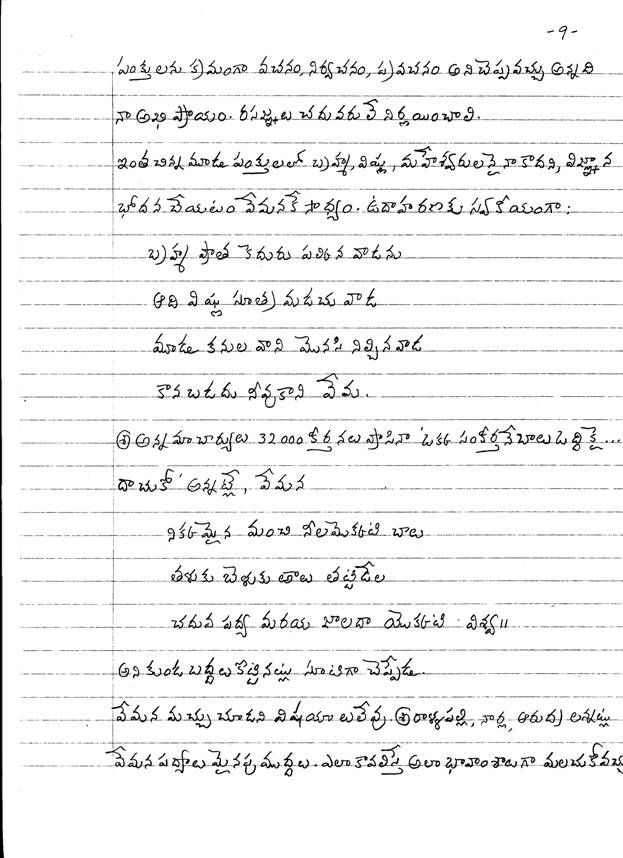 -9-
పంక్తులను క్రమంగా వచనం, నిర్వచనం, ప్రవచనం అని చెప్పవచ్చు అన్నది
నా అభిప్రాయం. రసజ్ఞులు చదువరులే నిర్ణయించాలి.
ఇంత చిన్న మూడు పంక్తులలో బ్రహ్మ, విష్ణు, మహేశ్వరులనైనా కాదని, విజ్ఞాన
భోదన చేయటం వేమనకే సాధ్యం. ఉదాహరణకు సవ్ఛీయంగా:
బ్రహ్మ వ్రాత కెదురు పలికిన వాడను
ఆది విష్ణు సూత్ర మడచు వాడ
మూడు కనుల వాని మొనసి నిల్చినవాడ
కానబడదు నీవుకాని వేమ.
④ అన్నమాచార్యులు 32000 కీర్తనలు వ్రాసినా 'ఒకటి సంకీర్తనే చాలు ఒద్దికై...
దాచుకో' అన్నట్లే, వేమన
నికటమైన మంచి నీలమొకటి చాలు
తళుకు బెళుకు రాలు తట్టెడేల
చదువ పద్య మరయ జాలదా యొకటి విశ్వ॥
అని కుండ బద్దలుకొట్టినట్లు సూటిగా చెప్పేడు.
వేమన మచ్చు చూడని విషయాలులేవు. ④ రాళ్ళపల్లి, నార్ల, ఆరుద్ర లన్నట్లు
వేమన పద్యాలు మైనపు ముద్దలు. ఎలా కావలిస్తే అలా భావాంశాలుగా మలచుకోవచ్చు